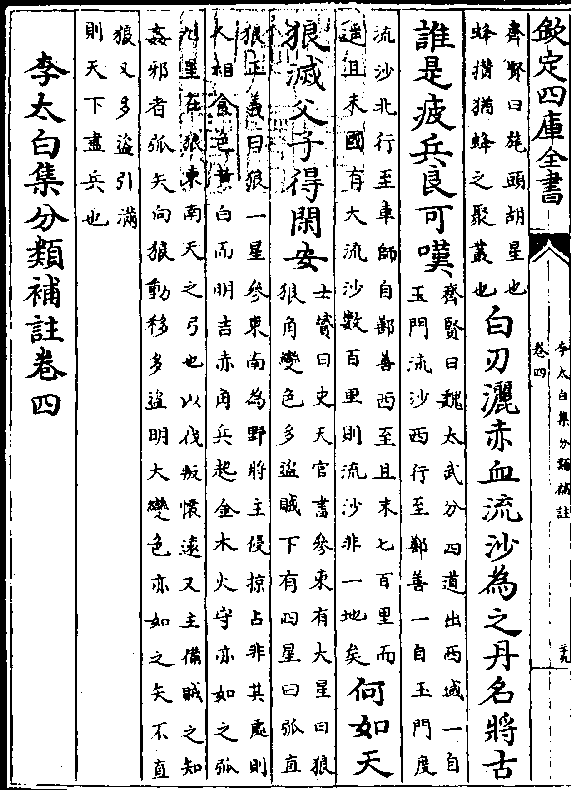 欽定四庫全書
李太白集分類補註
卷四
齊賢曰旄頭胡星也
蜂攢猶蜂之聚叢也
白刃灑赤血流沙為之丹名將古
誰是疲兵良可嘆
齊賢曰魏太武分四道出西域一自
玉門流沙西行至鄯善一自玉門度
流沙北行至車師自鄯善西至且末七百里而
且末國有大流沙數百里則流沙非一地矣
何如天
狼滅父子得閑安
士贇曰史天官書參東有大星曰狼
狼角變色多盜賊下有四星曰弧直
狼正義曰狼一星參東南為野將主侵掠占非其處則
人相食色黃白而明吉赤角兵起金木火守亦如之弧
九星在狼東南天之弓也以伐叛懷遠又主備賊之知
姦邪者弧矢向狼動移多盜明大變色亦如之矢不直
狼又多盜引滿
則天下盡兵也
李太白集分類補註卷四